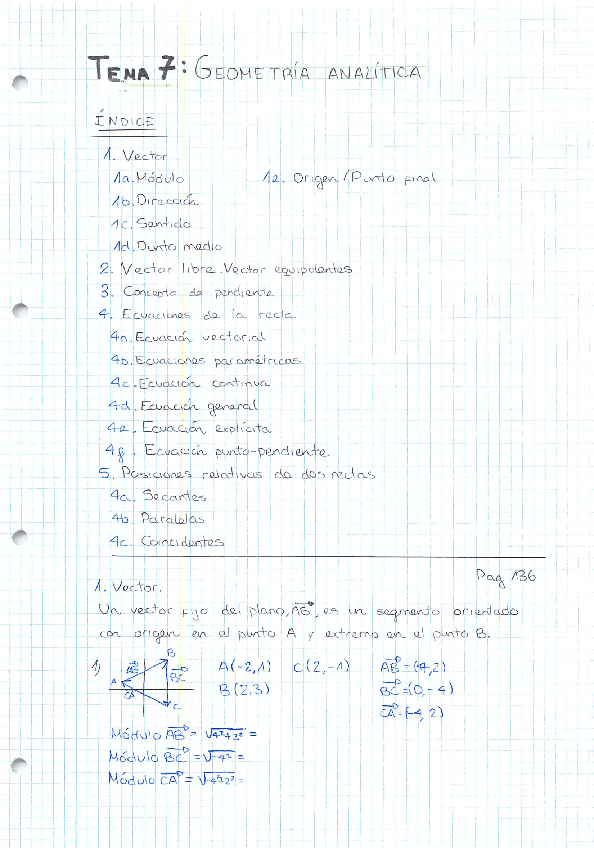 TEMA 7: GEOMETRÍA ANALÍTICA
ÍNDICE
1. Vector
1a. Módulo 1e. Origen / Punto final
1b. Dirección
1c. Sentido
1d. Punto medio
2. Vector libre. Vector equipolentes
3. Concepto de pendiente
4. Ecuaciones de la recta.
4a. Ecuación vectorial
4b. Ecuaciones paramétricas
4c. Ecuación continua
4d. Ecuación general
4e. Ecuación explícita
4f. Ecuación punto-pendiente
5. Posiciones relativas de dos rectas
4a. Secantes
4b. Paralelas
4c. Coincidentes
Pag 136
1. Vector.
Un vector fijo del plano, AB, es un segmento orientado
con origen en el punto A y extremo en el punto B.
1) A(-2,1) C(2,-1) AB = (4,2)
B(2,3) BC = (0,-4)
CA = (-4,2)
B
AB
BC
A
CA
C
Módulo AB = √4²+2² =
Módulo BC = √-4² =
Módulo CA = √-4²2² =